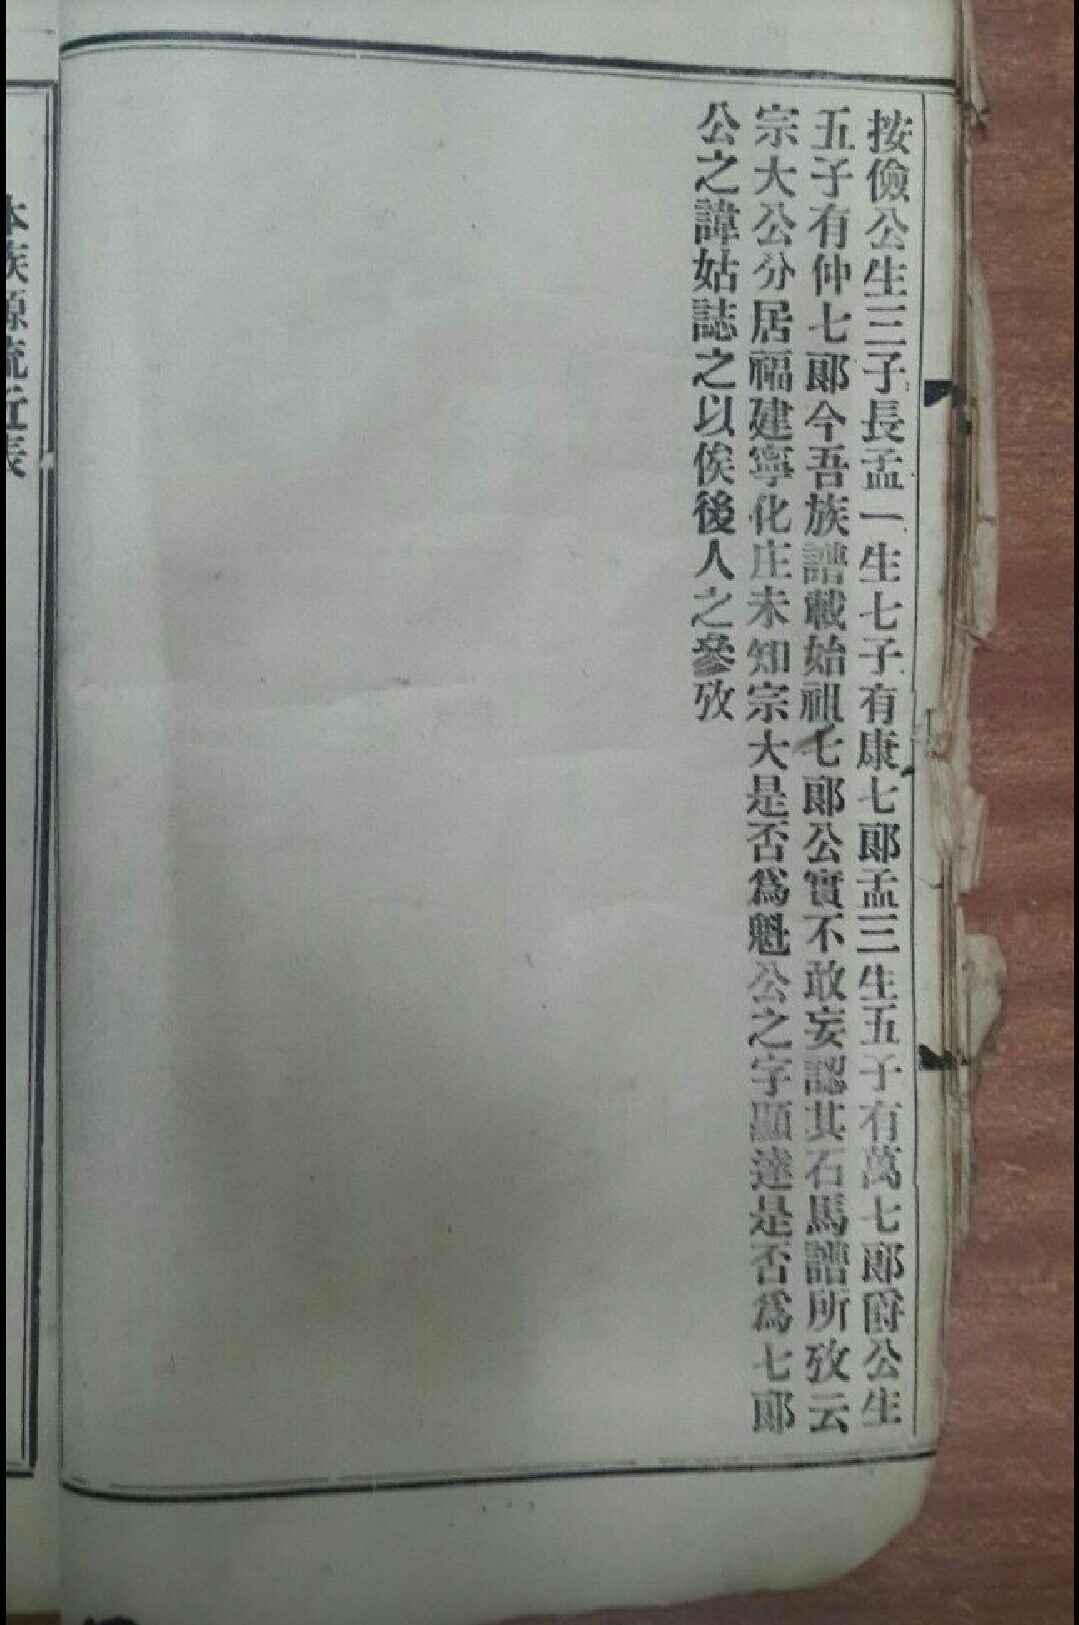 按儉公生三子長孟一生七子有康七郞孟三生五子有萬七郞爵公生
五子有仲七郞今吾族譜載始祖七郞公實不敢妄認其石馬譜所攷云
宗大公分居福建寧化庄未知宗大是否爲魁公之字顯達是否爲七郞
公之諱姑誌之以俟後人之參攷
本族源流近表